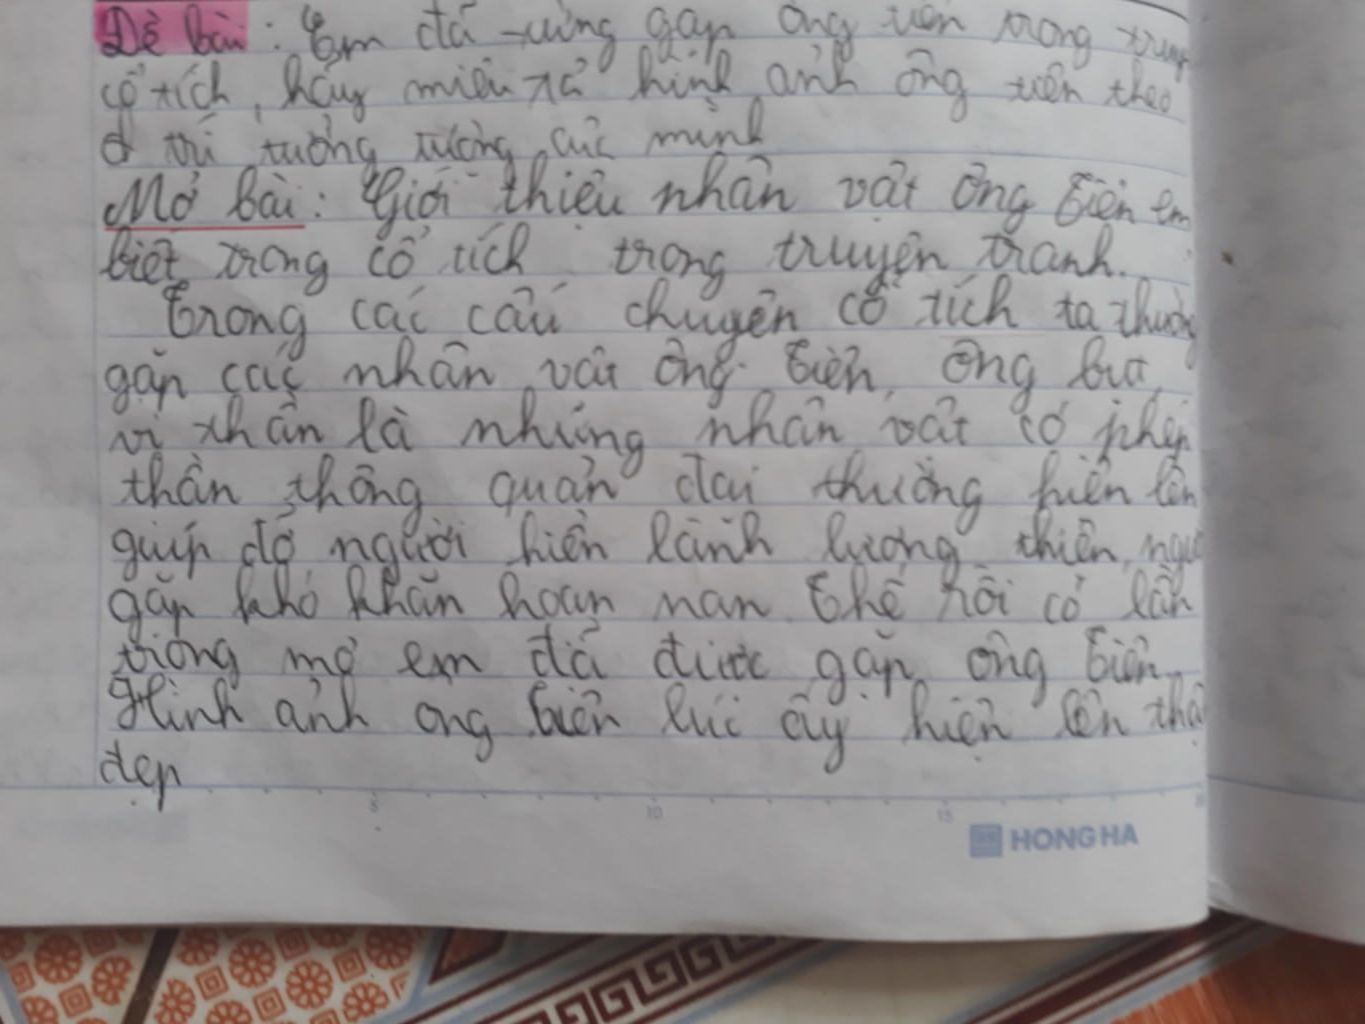 Đề bài: Em đã từng gặp ông tiên trong truyện
cổ tích, hãy miêu tả hình ảnh ông tiên theo
trí tưởng tượng của mình
Mở bài: Giới thiệu nhân vật ông Tiên em
biết trong cổ tích trong truyện tranh.
Trong các câu chuyện cổ tích ta thường
gặp các nhân vật ông Tiên, ông bụt,
vị thần là những nhân vật có phép
thần thông quản đại thường hiện lên
giúp đỡ người hiền lành lương thiện,
gặp khó khăn hoạn nạn Thế rồi có lần
trong mơ em đã được gặp ông Tiên
Hình ảnh ông Tiên lúc ấy hiện lên thật
đẹp
5 10 15
HONG HA